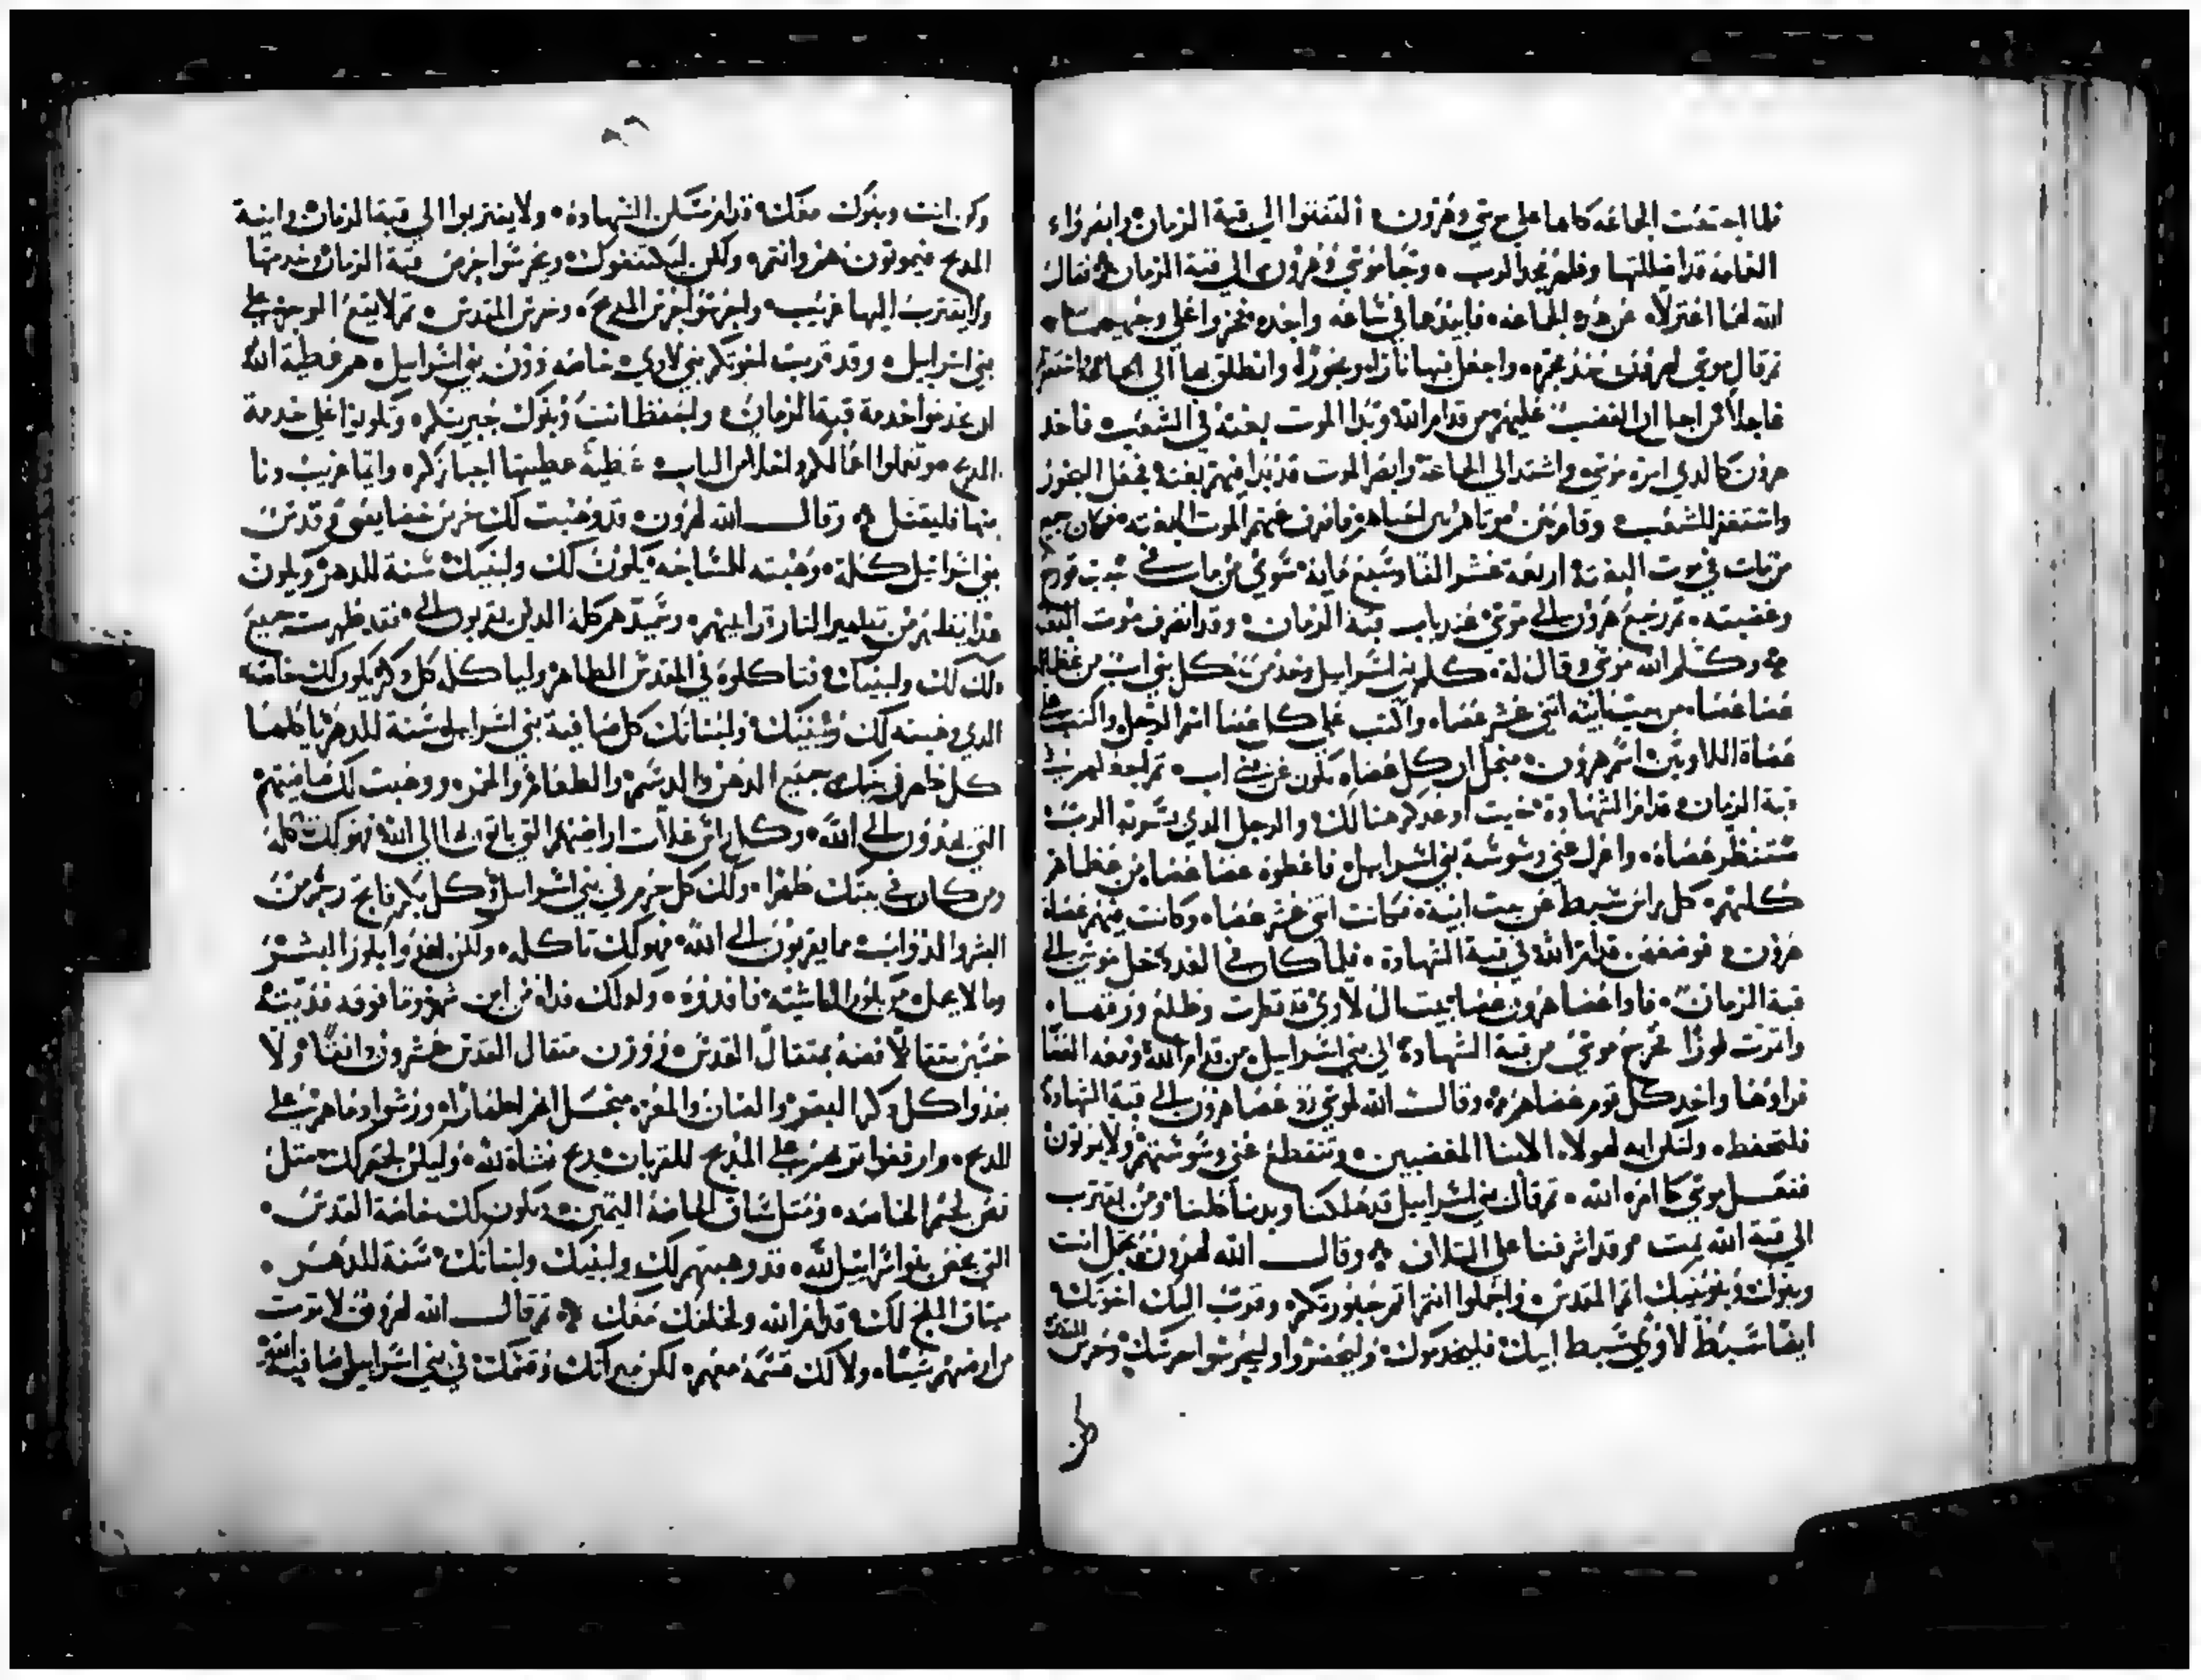 فلما اجتمعت الجماعه كلها علي موسي وهرون التفتوا الي قبة الزمان وابصروا
الغمامة قد اظللتها وظهر مجد الرب وجا موسي وهرون الي قبة الزمان فقال
الله لهما اعتزلا عن هذه الجماعه فابيدها في ساعه واحده فخروا علي وجهيهما
ثم قال موسي لهرون خذ مجمره واجعل فيها نارا وبخورا وانطلق بها الي الجماعة
الغضب عليهم من قدام الله وبدا الموت بغتة في الشعب فاخذ
هرون كالذي امره موسي واشتد الي الجماعة وابصر الموت قد بدا فيهم بغتة فجعل البخور
واستغفر للشعب وقام بين موتاهم الي احياهم فانصرف عنهم الموت البغته فكان جميع
من مات في موت البغتة اربعة عشر الفا وسبع ماية سوي من مات في سبب قورح
وعصبته ثم رجع هرون الي موسي عند باب قبة الزمان وقد انصرف موت البغتة
وكلم الله موسي وقال له كلم بني اسراييل وخذ من كل بني اب من عظمايهم
عصا عصا من بيت ابايه اثني عشر عصاه واكتب علي كل عصا اسم الرجل واكتب علي
عصاة اللاويين اسم هرون من اجل ان كل عصاه تكون عن بني اب ثم اجعلهم في
قبة الزمان قدام الشهادة حيث اوعدكم هنالك والرجل الذي يسر به الرب
ستنظر عصاه واعزل عني وشوشة بني اسراييل فاعطوه عصا عصا من عظماهم
كلهم كل راس سبط عن بيت ابيه فكانت اثني عشر عصاه وكانت بينهم عصاة
هرون فوضعهن قدام الله في قبة الشهادة فلما كان في الغد دخل موسي الي
قبة الزمان فاذا عصا هرون عصا بيت ال لاوي قد نظرت وطلع ورقها
واثمرت لوزا فخرج موسي من قبة الشهادة الي بني اسراييل من قدام الله ومعه العصا
فراوها واخد كل قوم عصاهم وقال الله لموسي رد عصا هرون الي قبة الشهادة
فلتحفظ ولتكن ايه لهولاء الابنا المغضبين وتنقطع عني وشوشتهم ولا يموتون
ففعل موسي كما امره الله ثم قال بني اسراييل قد هلكنا وبدنا كلنا ومن يقترب
الي قبة الله يمت وقد اشرفنا علي التلاف وقال الله لهرون تحمل انت
وبنوك وبنو بنيك اثم المقدس واحملوا انتم اثم حبورتكم وقرب اليك اخوتك
ايضا سبط لاوي سبط ابيك فليخدموك وليحضروا وليحرسوا حرسك وحرس المسكن
وكن انت وبنوك معك قدام مسكن الشهادة ولا يقتربوا الي قبة الزمان وانية
المدبح فيموتون هم وانتم ولكن ليكتنفوك ويحرسوا حرس قبة الزمان وخدمتها
ولا يقترب اليها غريب وليحرسوا حرس المدبح وحرس المقدس ثم لا يقع الوجز علي
بني اسراييل وقد قربت اخوتكم بني لاوي خاصه دون بني اسراييل هم عطية الله
ان يخدموا خدمة قبة الزمان وليحفظ انت وبنوك حبريتكم وتكونوا علي خدمة
المدبح عطية عطيتها احباركم وايما غريب دنا
منها فليقتل وقال الله لهرون قد وهبت لك حرس خصايصي وقدس
بنو اسراييل كله وهبته للمساحه يكون لك ولبنيك سنة للدهر ويكون
كلها الذين يقربون الي فقد طهرت جميع
ذلك لك ولبنيك فتاكلوه في المقدس الطاهر ولياكله كل ذكر يكون لك خاصه
الذي وهبته لك ولبنيك ولبناتك كل صافية بني اسراييل سنة للدهر ياكلها
كل طاهر في بيتك جميع الدهن والدسم والطعام والخمر ووهبت لك صافيتهم
التي يهدون الي الله وكل راس غلات اراضيهم التي ياتون بها الي الله فهو لك كله
ومن كان في بيتك طهرا ولك كل حرم في بني اسراييل وكل بكر فاتح رحم من
البشر والدواب مما يقربون الي الله فهو لك تاكله ولكن افدوا بكور البشر
وما لا يحل من بكور الماشيه فافدوه وليكن فداه من ابن شهر وما فوقه فديته
خمسين مثقالا فضه بمثقال القدس ووزن مثقال القدس عشرون دانقا ولا
تفدوا كل بكر البقر والضان والمعز من اجل انهم اطهارا ورشوا دماهم علي
المدبح وارفعوا ثروبهم علي المدبح للقربان ريح منشاة لله وليكن لحمهم لك مثل
قص لحم الخاصه ومثل ساق الخاصة اليمين وتكون لك خاصة القدس
التي يخص بنو اسراييل لله قد وهبتهم لك ولبنيك ولبناتك سنة للدهر
ميثاق الملح لك قدام الله ولخلفك معك ثم قال الله لهرون لا ترث
من ارضهم شيا ولا لك قسمة معهم لكن ميراثك وقسمك في بني اسراييل صافية الله